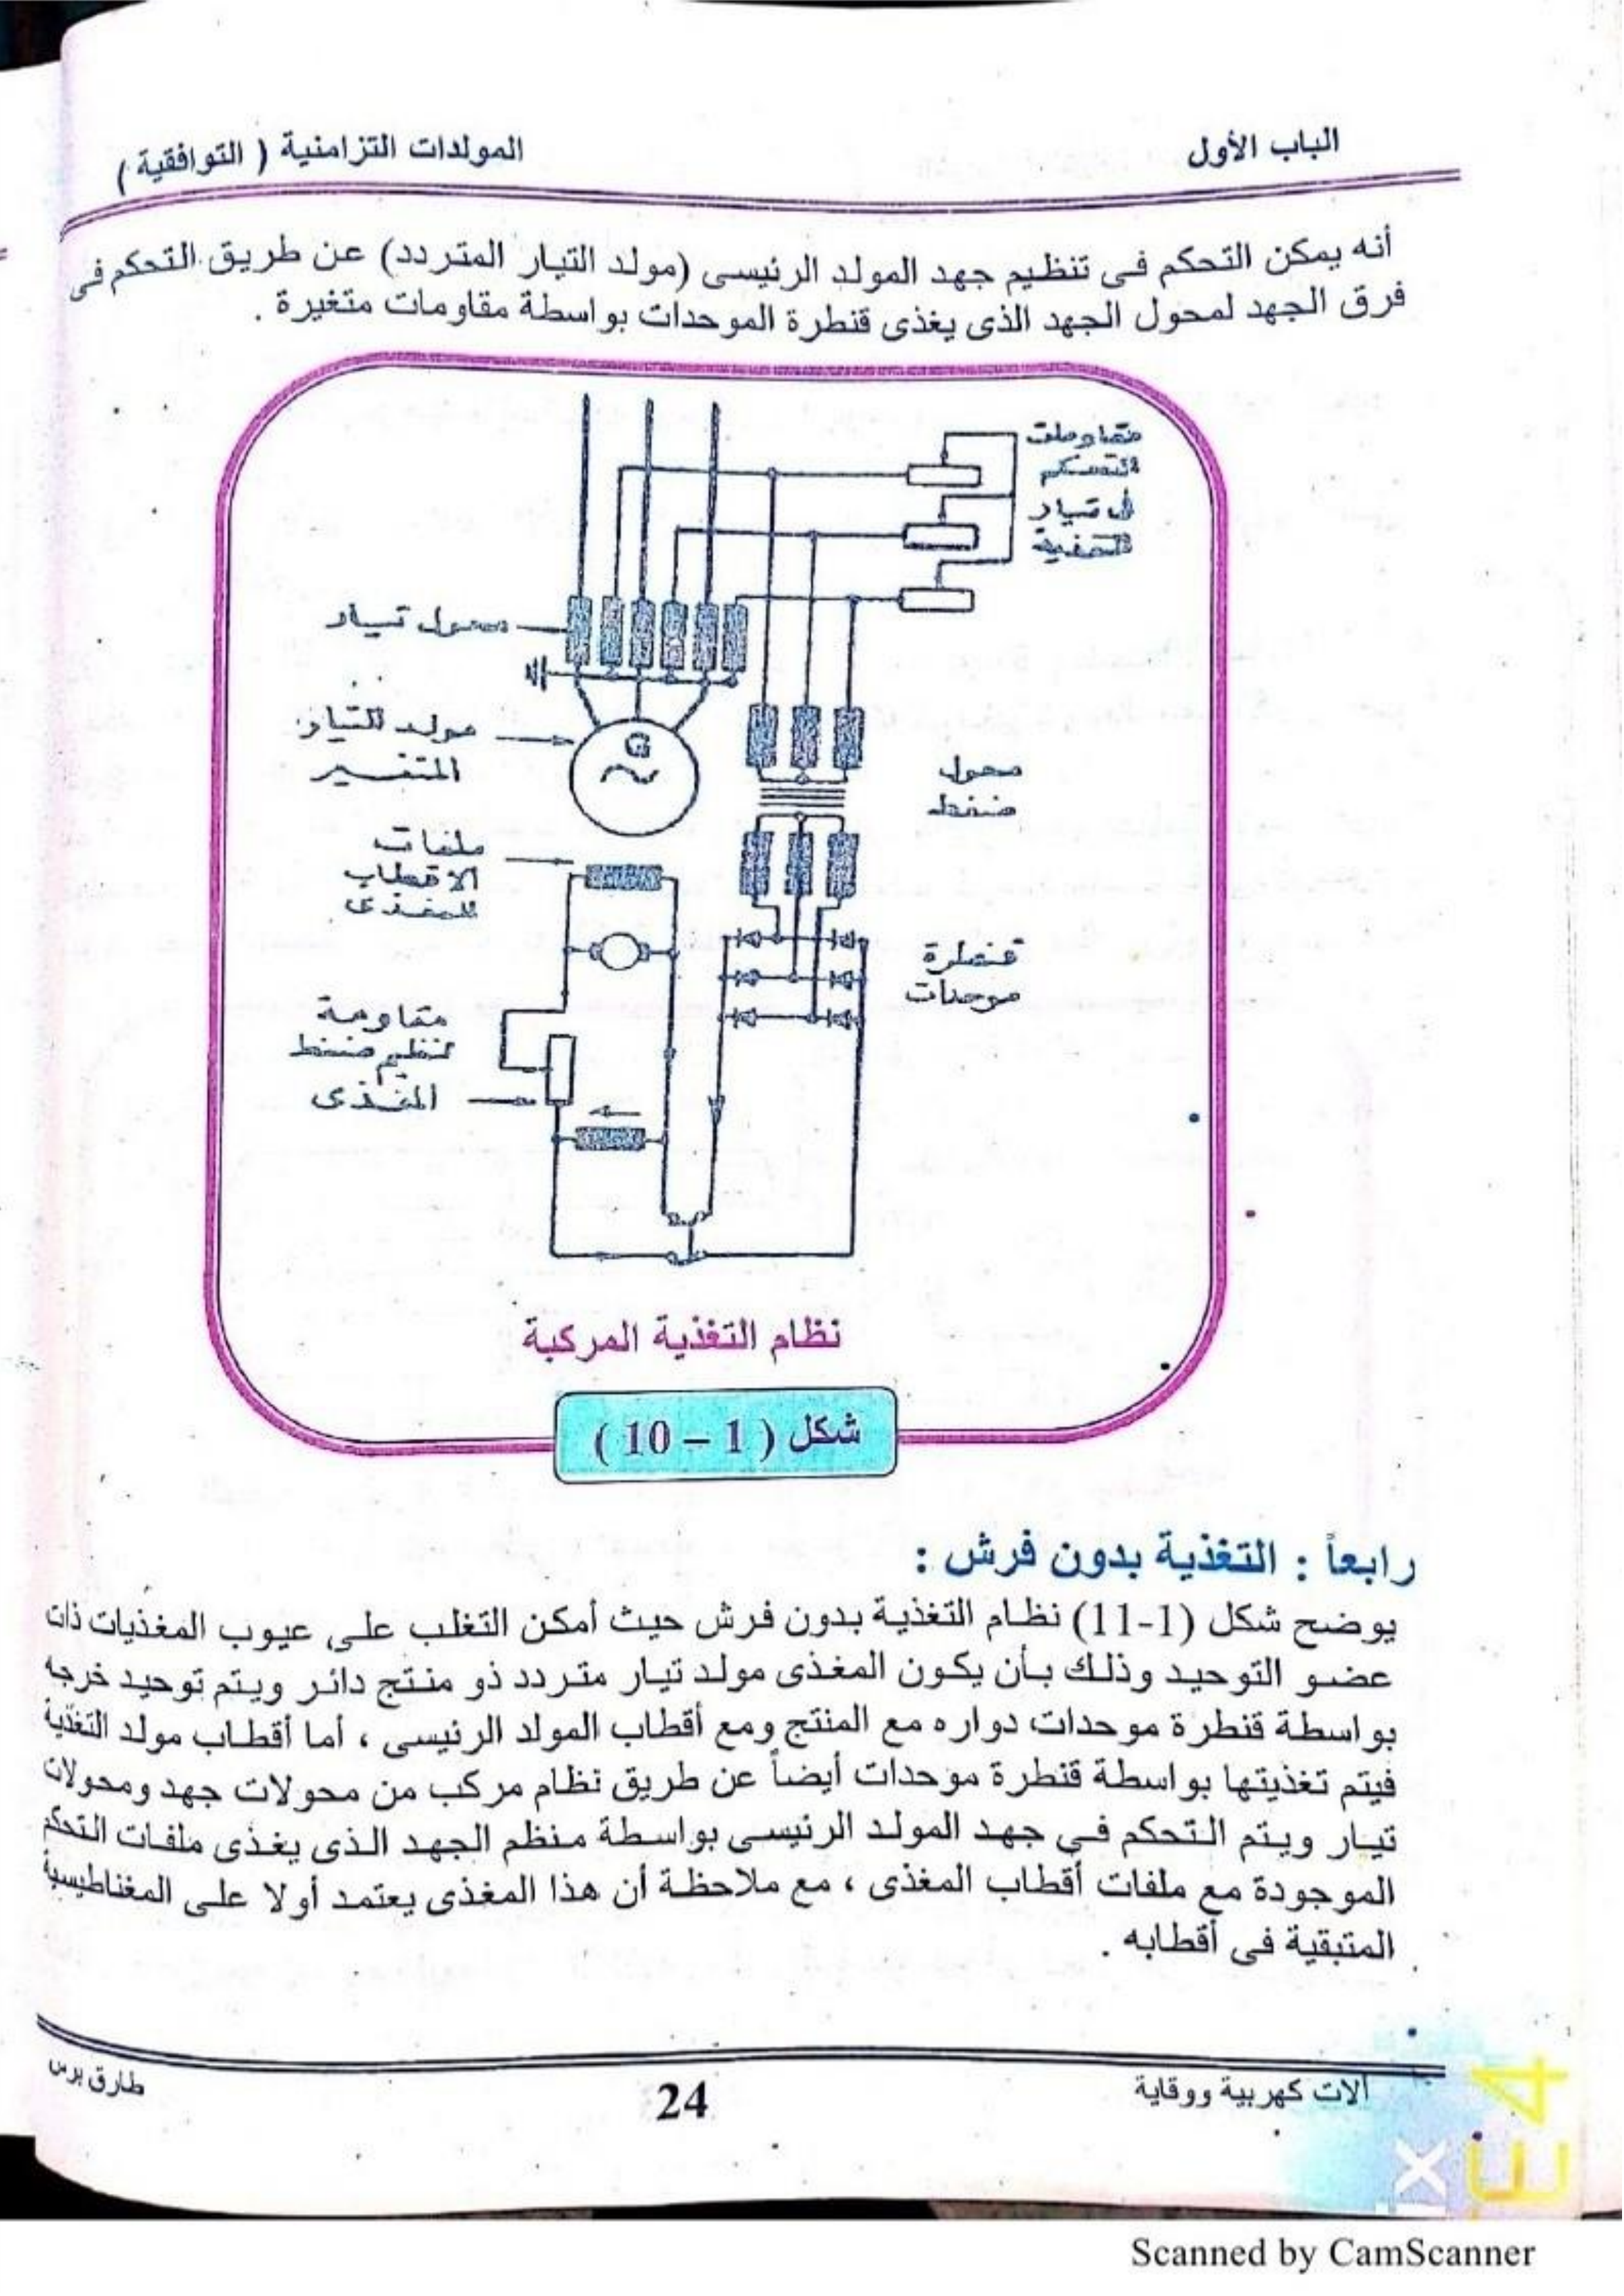 الباب الأول
المولدات التزامنية ( التوافقية )
أنه يمكن التحكم فى تنظيم جهد المولد الرئيسى (مولد التيار المتردد) عن طريق التحكم فى
فرق الجهد لمحول الجهد الذى يغذى قنطرة الموحدات بواسطة مقاومات متغيرة .
مقاومات
التحكم
فى تيار
التغذية
محول تيار
مولد للتيار
المتغير
G
محول
ضغط
ملفات
الاقطاب
للمغذى
قنطرة
موحدات
مقاومة
لتنظيم ضغط
المغذى
نظام التغذية المركبة
شكل ( 1 – 10 )
رابعاً : التغذية بدون فرش :
يوضح شكل (1-11) نظام التغذية بدون فرش حيث أمكن التغلب على عيوب المغذيات ذات
عضو التوحيد وذلك بأن يكون المغذى مولد تيار متردد ذو منتج دائر ويتم توحيد خرجه
بواسطة قنطرة موحدات دواره مع المنتج ومع أقطاب المولد الرئيسى ، أما أقطاب مولد التغذية
فيتم تغذيتها بواسطة قنطرة موحدات أيضاً عن طريق نظام مركب من محولات جهد ومحولات
تيار ويتم التحكم فى جهد المولد الرئيسى بواسطة منظم الجهد الذى يغذى ملفات التحكم
الموجودة مع ملفات أقطاب المغذى ، مع ملاحظة أن هذا المغذى يعتمد أولا على المغناطيسية
المتبقية فى أقطابه .
آلات كهربية ووقاية
24
طارق برس
Scanned by CamScanner